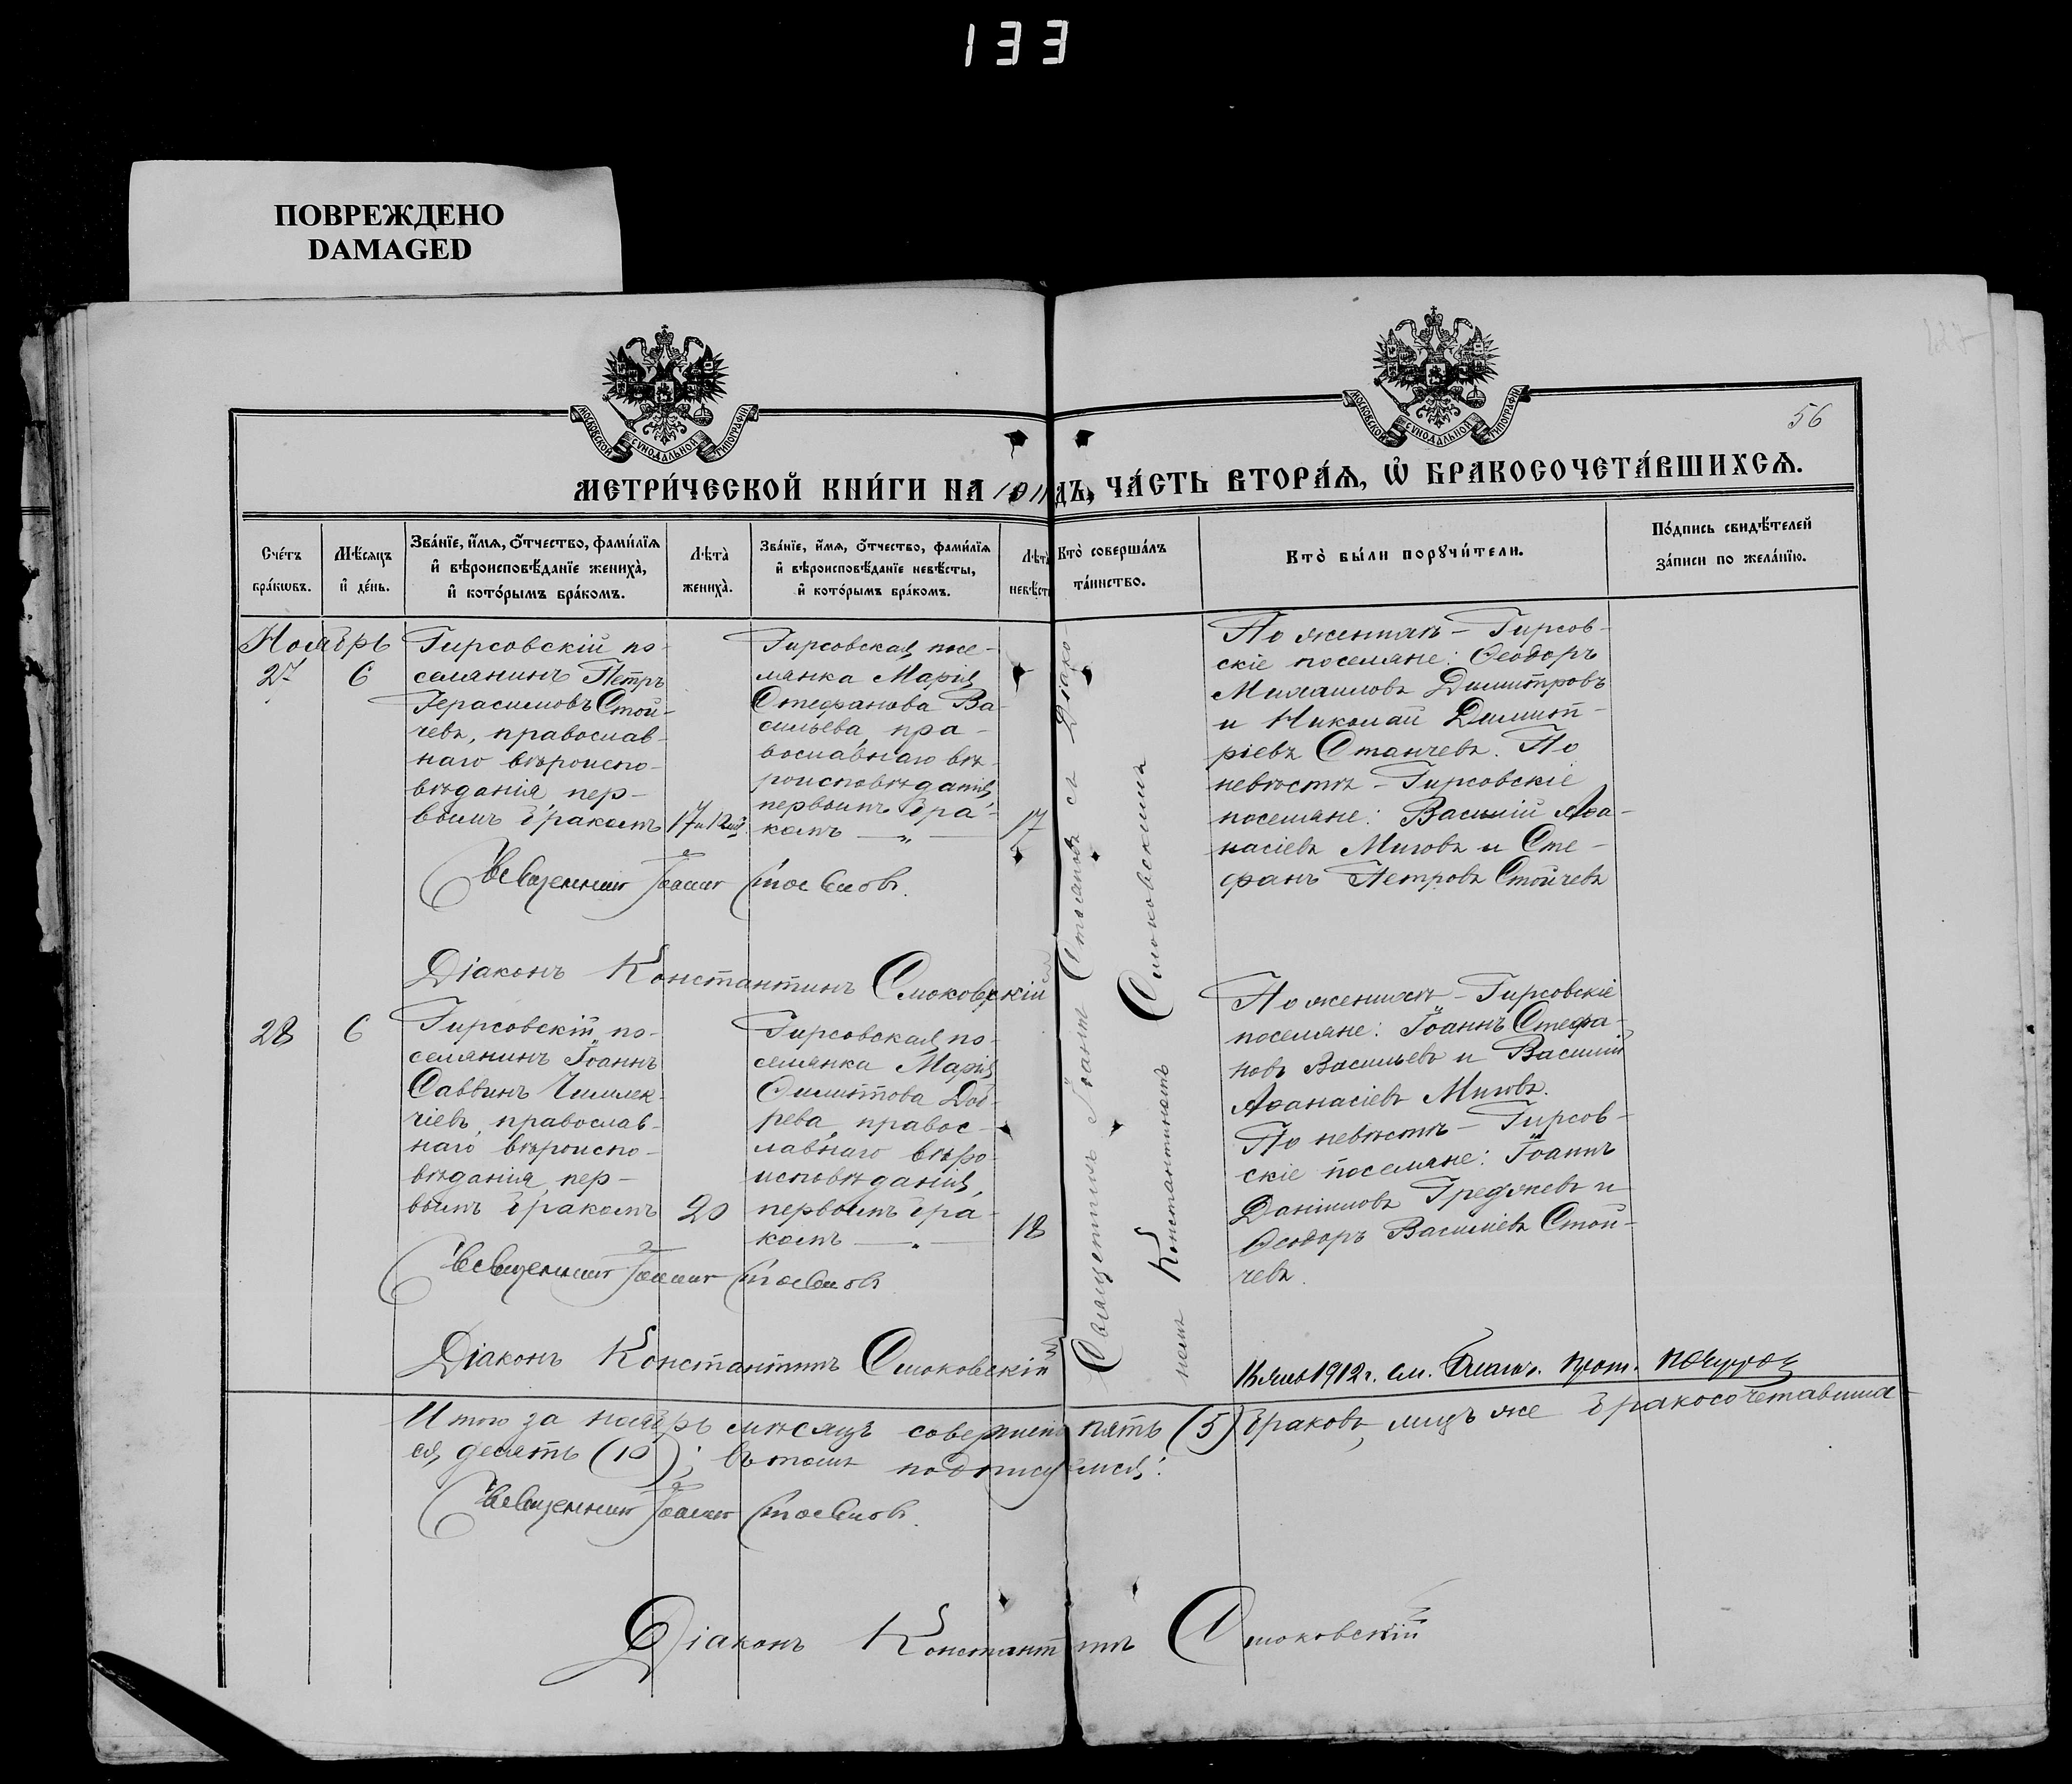 133
ПОВРЕЖДЕНО
DAMAGED
МОСКОВСКОЙ СѴНОДАЛЬНОЙ ТИПОГРАФІИ
МОСКОВСКОЙ СѴНОДАЛЬНОЙ ТИПОГРАФІИ
56
МЕТРИ́ЧЕСКОЙ КНИ́ГИ НА 1911 ДЪ, ЧА́СТЬ ВТОРА́Ѧ, Ѽ БРАКОСОЧЕТА́ВШИХСѦ.
Сче́тъ
бра́кѡвъ.
Мѣ́сѧцъ
и҆ де́нь.
Зва́нїе, и҆́мѧ, ѻ҆́тчество, фами́лїѧ
и҆ вѣроисповѣ́данїе жениха̀,
и҆ кото́рымъ бра́комъ.
Лѣта̀
жениха̀.
Зва́нїе, и҆́мѧ, ѻ҆́тчество, фами́лїѧ
и҆ вѣроисповѣ́данїе невѣ́сты,
и҆ кото́рымъ бра́комъ.
Лѣта̀
невѣ́сты
Кто̀ соверша́лъ
та́инство.
Кто̀ бы́ли порꙋчи́тели.
По́дпись свидѣ́телей
за́писи по жела́нїю.
Ноябрь
27
6
Гирсовскій по-
селянинъ Петръ
Герасимовъ Стой-
чевъ, православ-
наго вѣроиспо-
вѣданія, пер-
вымъ бракомъ
17 и 12 мѣ.
Гирсовская посе-
лянка Марія
Стефанова Ва-
сильева, пра-
вославнаго вѣ-
роисповѣданія,
первымъ бра-
комъ — „ —
17
По женихѣ – Гирсов-
скіе поселяне: Ѳеодоръ
Михаиловъ Димитровъ
и Николай Димит-
ріевъ Станчевъ. По
невѣстѣ – Гирсовскіе
поселяне: Василій Аѳа-
насіевъ Миговъ и Сте-
фанъ Петровъ Стойчевъ
Священникъ Іоаннъ Стояновъ.
Діаконъ Константинъ Смоковскій
28
6
Гирсовскій по-
селянинъ Іоаннъ
Саввинъ Чимлек-
чіевъ, православ-
наго вѣроиспо-
вѣданія, пер-
вымъ бракомъ
20
Гирсовская по-
селянка Марія
Филиппова Доб-
рева, правос-
лавнаго вѣро-
исповѣданія,
первымъ бра-
комъ — „ —
18
Священникъ Іоаннъ Стояновъ съ Діако-
номъ Константиномъ Смоковскимъ
По женихѣ – Гирсовскіе
поселяне: Іоаннъ Стефа-
новъ Васильевъ и Василій
Аѳанасіевъ Миговъ.
По невѣстѣ – Гирсов-
скіе поселяне: Іоаннъ
Даніиловъ Греджевъ и
Ѳеодоръ Василіевъ Стой-
чевъ.
Священникъ Іоаннъ Стояновъ
Діаконъ Константинъ Смоковскій
1912 г.
Итого за ноябрь мѣсяцъ совершено пять (5) браковъ, лицъ же бракосочетавших-
ся десять (10); въ томъ подписуемся:
Священникъ Іоаннъ Стояновъ.
Діаконъ Константинъ Смоковскій